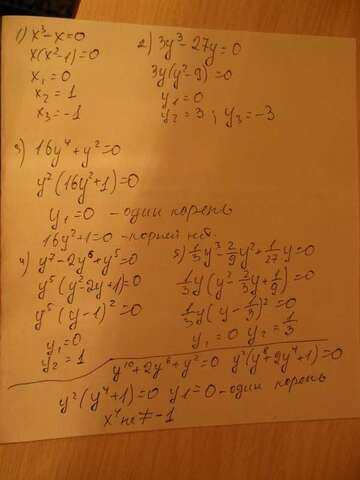 1) x³ - x = 0
x(x² - 1) = 0
x₁ = 0
x₂ = 1
x₃ = -1
2) 3y³ - 27y = 0
3y(y² - 9) = 0
y₁ = 0
y₂ = 3 ; y₃ = -3
3) 16y⁴ + y² = 0
y²(16y² + 1) = 0
y₁ = 0 - один корень
16y² + 1 = 0 - корней нет.
4) y⁷ - 2y⁶ + y⁵ = 0
y⁵(y² - 2y + 1) = 0
y⁵(y - 1)² = 0
y₁ = 0
y₂ = 1
5) 1/3 y³ - 2/9 y² + 1/27 y = 0
1/3 y(y² - 2/3 y + 1/9) = 0
1/3 y(y - 1/3)² = 0
y₁ = 0 y₂ = 1/3
y¹⁰ + 2y⁶ + y² = 0 y²(y⁸ + 2y⁴ + 1) = 0
y²(y⁴ + 1) = 0 y₁ = 0 - один корень
x⁴ не ≠ -1